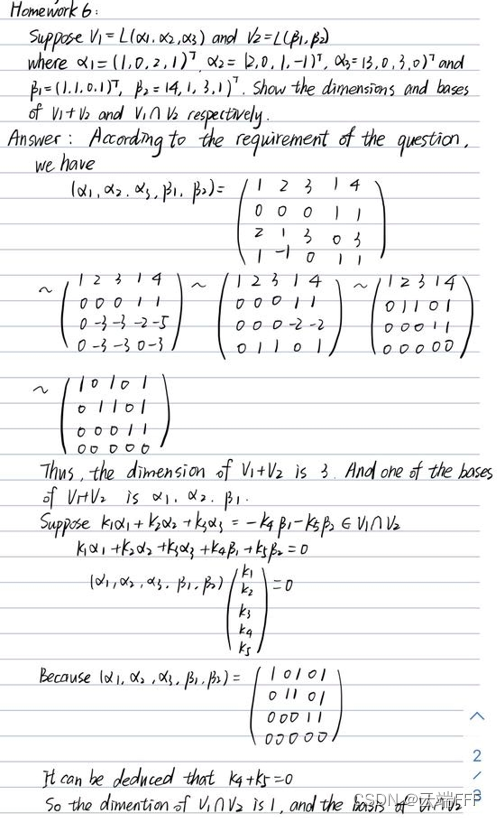 Homework 6:
Suppose V1=L(α1.α2,α3) and V2=L(β1,β2)
where α1=(1,0,2,1)ᵀ, α2=(2,0,1,-1)ᵀ, α3=(3,0,3,0)ᵀ and
β1=(1.1.0.1)ᵀ, β2=(4,1,3,1)ᵀ. Show the dimensions and bases
of V1+V2 and V1∩V2 respectively.
Answer: According to the requirement of the question,
we have
(α1,α2.α3,β1,β2)= (1 2 3 1 4
0 0 0 1 1
2 1 3 0 3
1 -1 0 1 1)
~ (1 2 3 1 4 ~ (1 2 3 1 4 ~ (1 2 3 1 4
0 0 0 1 1 0 0 0 1 1 0 1 1 0 1
0 -3 -3 -2 -5 0 0 0 -2 -2 0 0 0 1 1
0 -3 -3 0 -3) 0 1 1 0 1) 0 0 0 0 0)
~ (1 0 1 0 1
0 1 1 0 1
0 0 0 1 1
0 0 0 0 0)
Thus, the dimension of V1+V2 is 3. And one of the bases
of V1+V2 is α1, α2. β1.
Suppose k1α1+k2α2+k3α3=-k4β1-k5β2∈V1∩V2
k1α1+k2α2+k3α3+k4β1+k5β2=0
(α1,α2,α3,β1,β2) (k1
k2
k3
k4
k5) =0
Because (α1,α2,α3,β1,β2)= (1 0 1 0 1
0 1 1 0 1
0 0 0 1 1
0 0 0 0 0)
2
It can be deduced that k4+k5=0
3
So the dimention of V1∩V2 is 1, and the basis of V1∩V2
CSDN @云端FFF